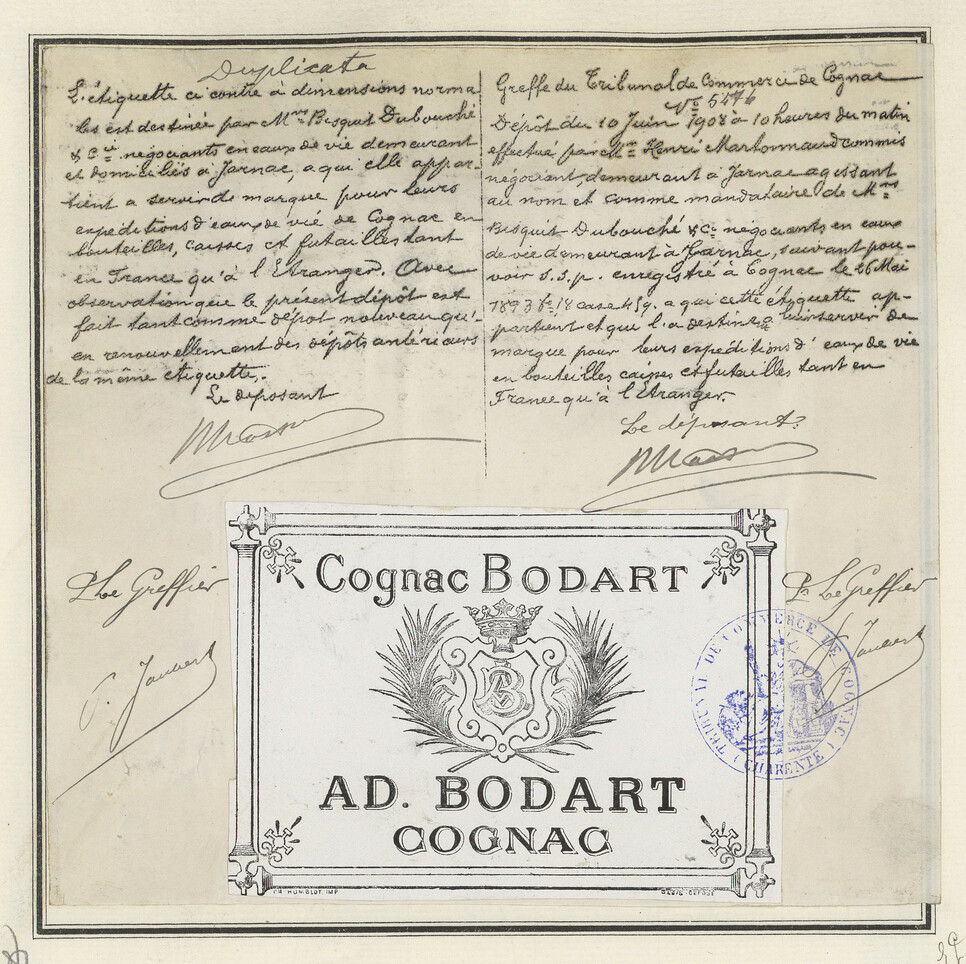 Duplicata
L'étiquette ci contre à dimensions norma-
les est destinée par Mrs Bisquit Dubouché
& Cie négociants en eaux de vie demeurant
et domiciliés à Jarnac, a qui elle appar-
tient a servir de marque pour leurs
expéditions d'eaux de vie de Cognac en
bouteilles, caisses et futailles tant
en France qu'à l'Etranger. Avec
observation que le présent dépôt est
fait tant comme dépôt nouveau qu'
en renouvellement des dépôts antérieurs
de la même étiquette.
Le déposant
Greffe du Tribunal de Commerce de Cognac
No 5476
Dépôt du 10 Juin 1908 à 10 heures du matin
effectué par Mr Henri Martonnaud commis
négociant, demeurant à Jarnac agissant
au nom et comme mandataire de Mrs
Bisquit Dubouché & Cie négociants en eaux
de vie demeurant à Jarnac, suivant pou-
voir s.s.p. enregistré à Cognac le 26 Mai
1893 fo 18 case 459. a qui cette étiquette ap-
partient et qui l'a destinée à servir de
marque pour leurs expéditions d'eaux de vie
en bouteilles caisses et futailles tant en
France qu'à l'Etranger.
Le déposant.
P. Le Greffier
Cognac BODART
AD. BODART
COGNAC
CH. HUMBLOT, IMP
P. Le Greffier
TRIBUNAL DE COMMERCE DE COGNAC
(CHARENTE)